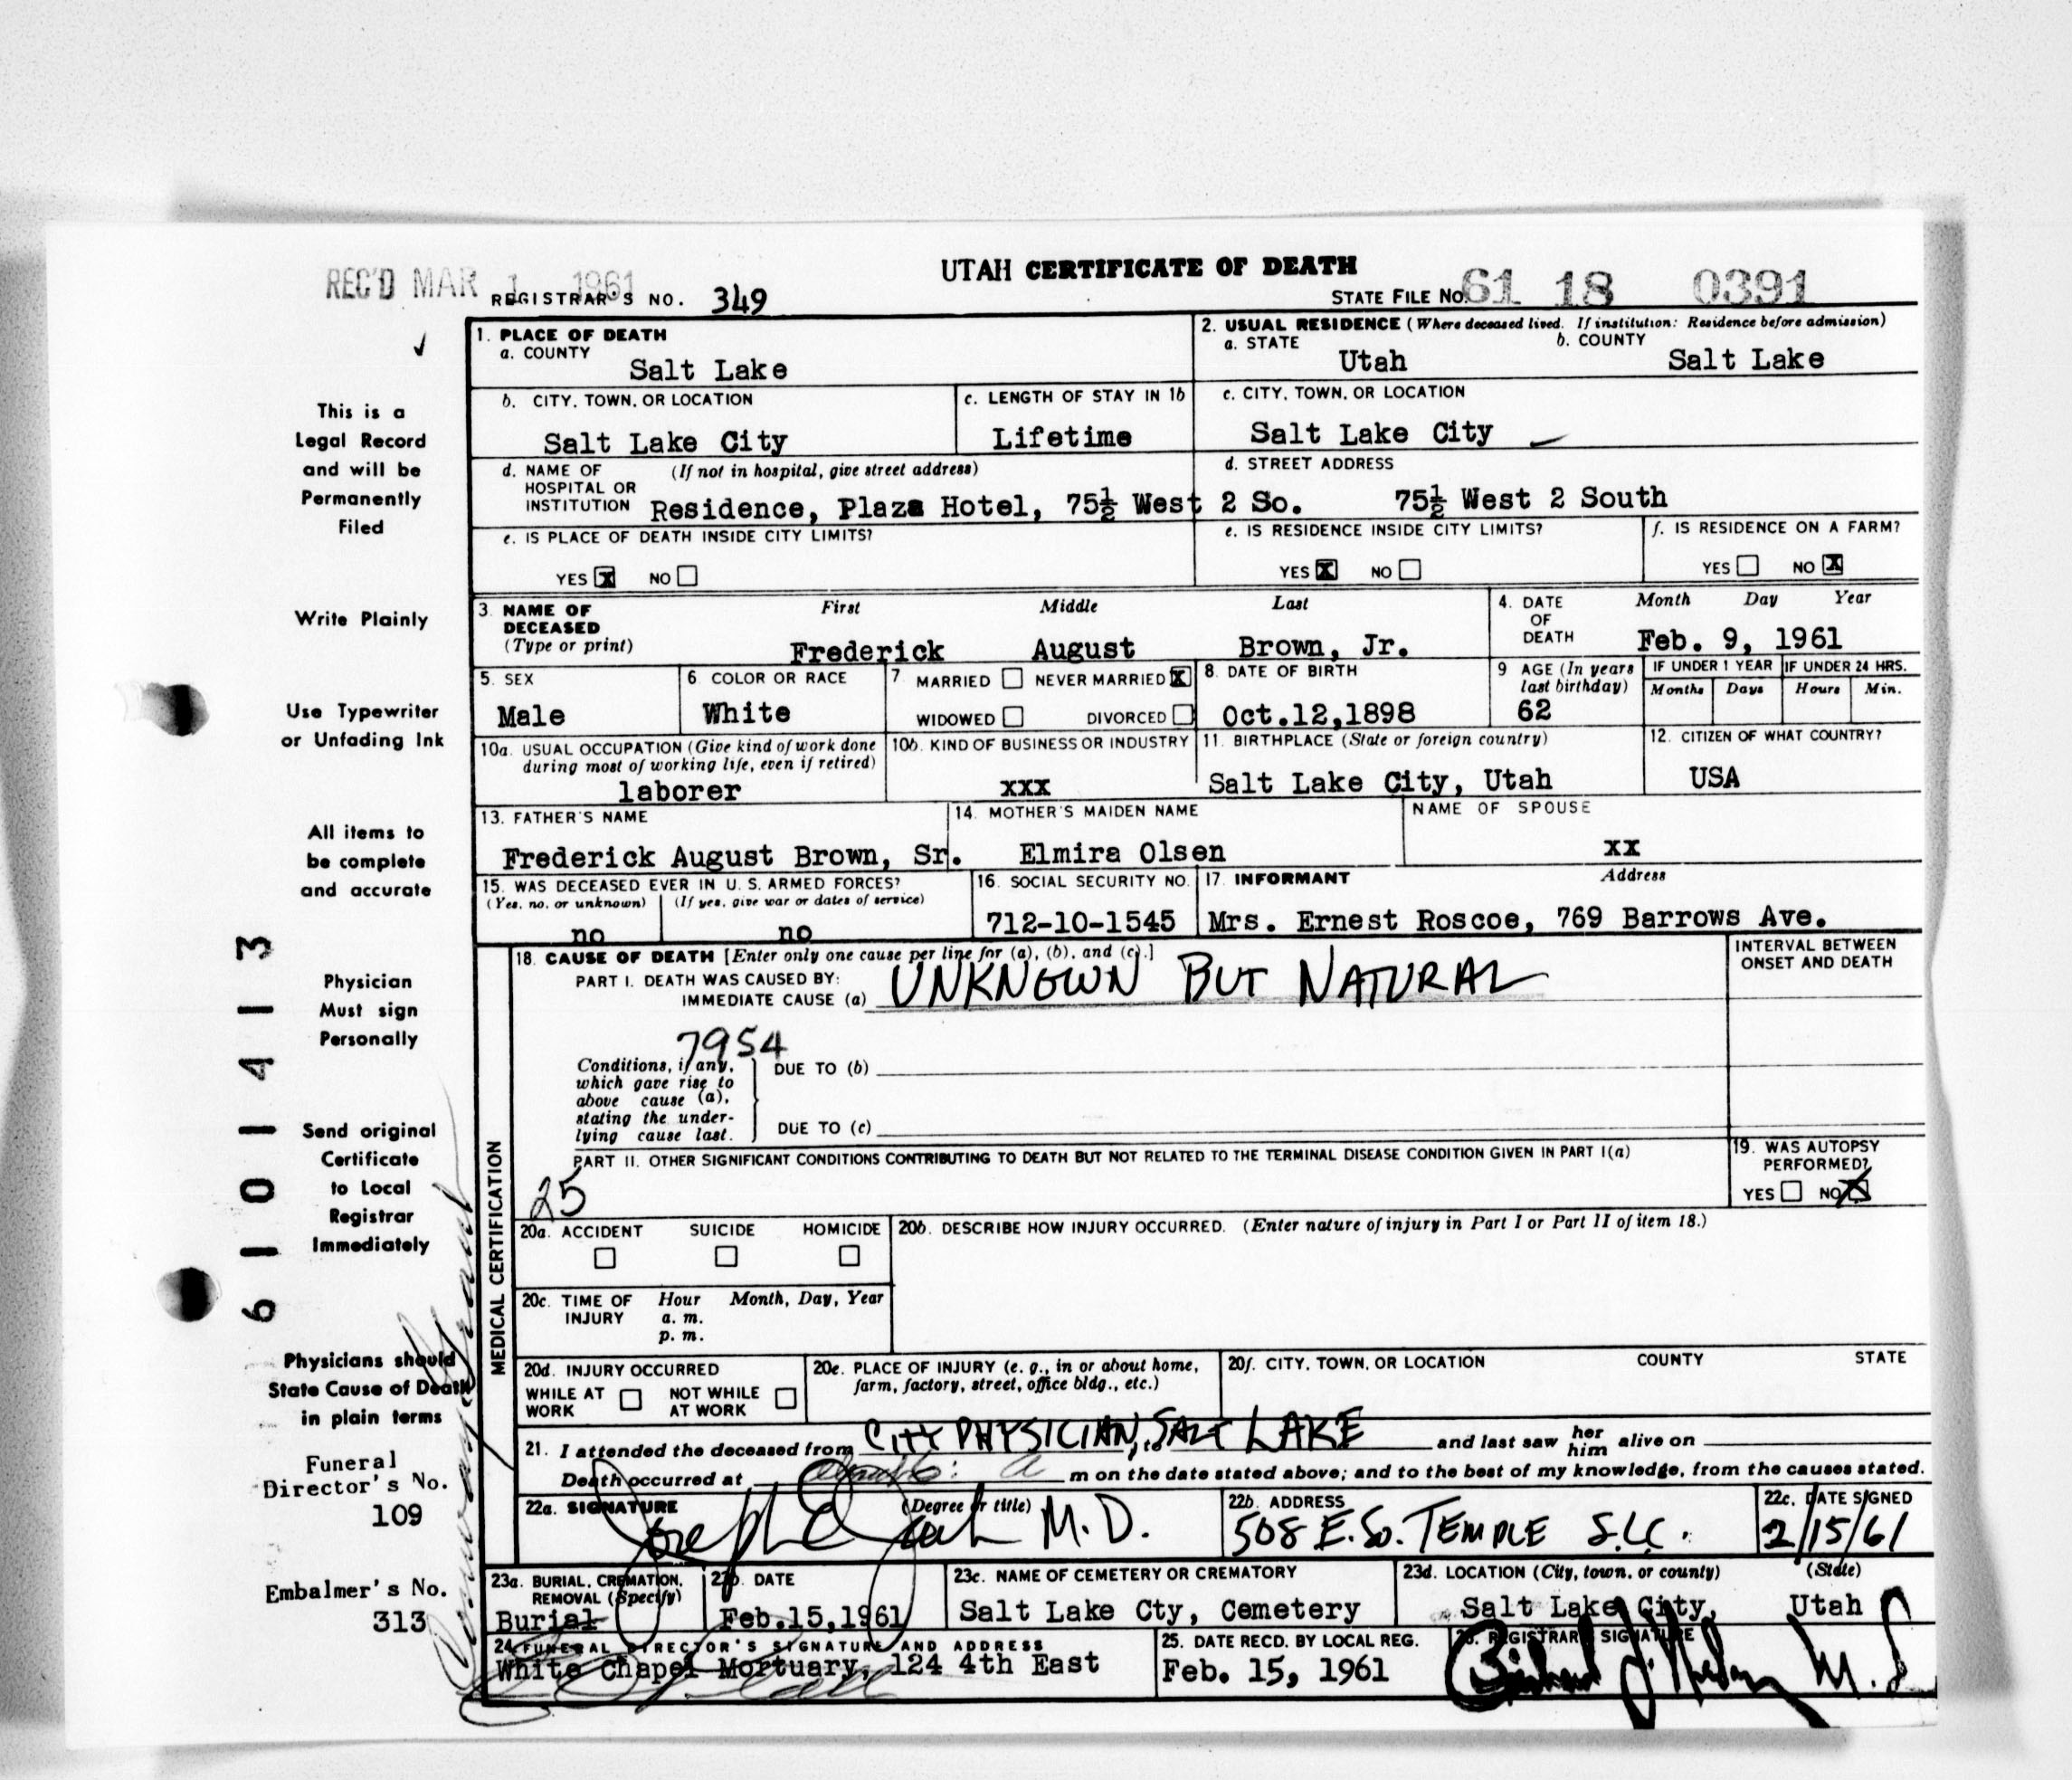 UTAH CERTIFICATE OF DEATH
REC'D MAR 1 1961
REGISTRAR'S NO. 349
STATE FILE NO. 61 18 0391
1. PLACE OF DEATH
a. COUNTY
Salt Lake
2. USUAL RESIDENCE (Where deceased lived. If institution: Residence before admission)
a. STATE
Utah
b. COUNTY
Salt Lake
b. CITY, TOWN, OR LOCATION
Salt Lake City
c. LENGTH OF STAY IN 1b
Lifetime
c. CITY, TOWN, OR LOCATION
Salt Lake City
d. NAME OF HOSPITAL OR INSTITUTION
(If not in hospital, give street address)
Residence, Plaza Hotel, 75½ West 2 So.
d. STREET ADDRESS
75½ West 2 South
e. IS PLACE OF DEATH INSIDE CITY LIMITS?
YES X NO
e. IS RESIDENCE INSIDE CITY LIMITS?
YES X NO
f. IS RESIDENCE ON A FARM?
YES NO X
3. NAME OF DECEASED
(Type or print)
First Middle Last
Frederick August Brown, Jr.
4. DATE OF DEATH
Month Day Year
Feb. 9, 1961
5. SEX
Male
6. COLOR OR RACE
White
7. MARRIED NEVER MARRIED X
WIDOWED DIVORCED
8. DATE OF BIRTH
Oct.12,1898
9 AGE (In years last birthday)
62
IF UNDER 1 YEAR
Months Days
IF UNDER 24 HRS.
Hours Min.
10a. USUAL OCCUPATION (Give kind of work done during most of working life, even if retired)
laborer
10b. KIND OF BUSINESS OR INDUSTRY
xxx
11. BIRTHPLACE (State or foreign country)
Salt Lake City, Utah
12. CITIZEN OF WHAT COUNTRY?
USA
13. FATHER'S NAME
Frederick August Brown, Sr.
14. MOTHER'S MAIDEN NAME
Elmira Olsen
NAME OF SPOUSE
xx
15. WAS DECEASED EVER IN U. S. ARMED FORCES?
(Yes, no, or unknown) (If yes, give war or dates of service)
no no
16. SOCIAL SECURITY NO.
712-10-1545
17. INFORMANT Address
Mrs. Ernest Roscoe, 769 Barrows Ave.
MEDICAL CERTIFICATION
18. CAUSE OF DEATH [Enter only one cause per line for (a), (b), and (c).]
PART I. DEATH WAS CAUSED BY:
IMMEDIATE CAUSE (a) UNKNOWN BUT NATURAL
INTERVAL BETWEEN ONSET AND DEATH
7954
Conditions, if any, which gave rise to above cause (a), stating the underlying cause last.
DUE TO (b)
DUE TO (c)
PART II. OTHER SIGNIFICANT CONDITIONS CONTRIBUTING TO DEATH BUT NOT RELATED TO THE TERMINAL DISEASE CONDITION GIVEN IN PART I(a)
25
19. WAS AUTOPSY PERFORMED?
YES NO X
20a. ACCIDENT SUICIDE HOMICIDE
20b. DESCRIBE HOW INJURY OCCURRED. (Enter nature of injury in Part I or Part II of item 18.)
20c. TIME OF INJURY
Hour Month, Day, Year
a. m.
p. m.
20d. INJURY OCCURRED
WHILE AT WORK NOT WHILE AT WORK
20e. PLACE OF INJURY (e. g., in or about home, farm, factory, street, office bldg., etc.)
20f. CITY, TOWN, OR LOCATION COUNTY STATE
21. I attended the deceased from CITY PHYSICIAN, SALT LAKE and last saw her him alive on
Death occurred at m on the date stated above; and to the best of my knowledge, from the causes stated.
22a. SIGNATURE (Degree or title)
M.D.
22b. ADDRESS
508 E. So. TEMPLE S.L.C.
22c. DATE SIGNED
2/15/61
23a. BURIAL, CREMATION, REMOVAL (Specify)
Burial
23b. DATE
Feb.15,1961
23c. NAME OF CEMETERY OR CREMATORY
Salt Lake Cty, Cemetery
23d. LOCATION (City, town, or county) (State)
Salt Lake City, Utah
24. FUNERAL DIRECTOR'S SIGNATURE AND ADDRESS
White Chapel Mortuary, 124 4th East
25. DATE RECD. BY LOCAL REG.
Feb. 15, 1961
26. REGISTRAR'S SIGNATURE
This is a
Legal Record
and will be
Permanently
Filed
Write Plainly
Use Typewriter
or Unfading Ink
All items to
be complete
and accurate
Physician
Must sign
Personally
Send original
Certificate
to Local
Registrar
Immediately
Physicians should
State Cause of Death
in plain terms
Funeral
Director's No.
109
Embalmer's No.
313
6 1 0 1 4 1 3